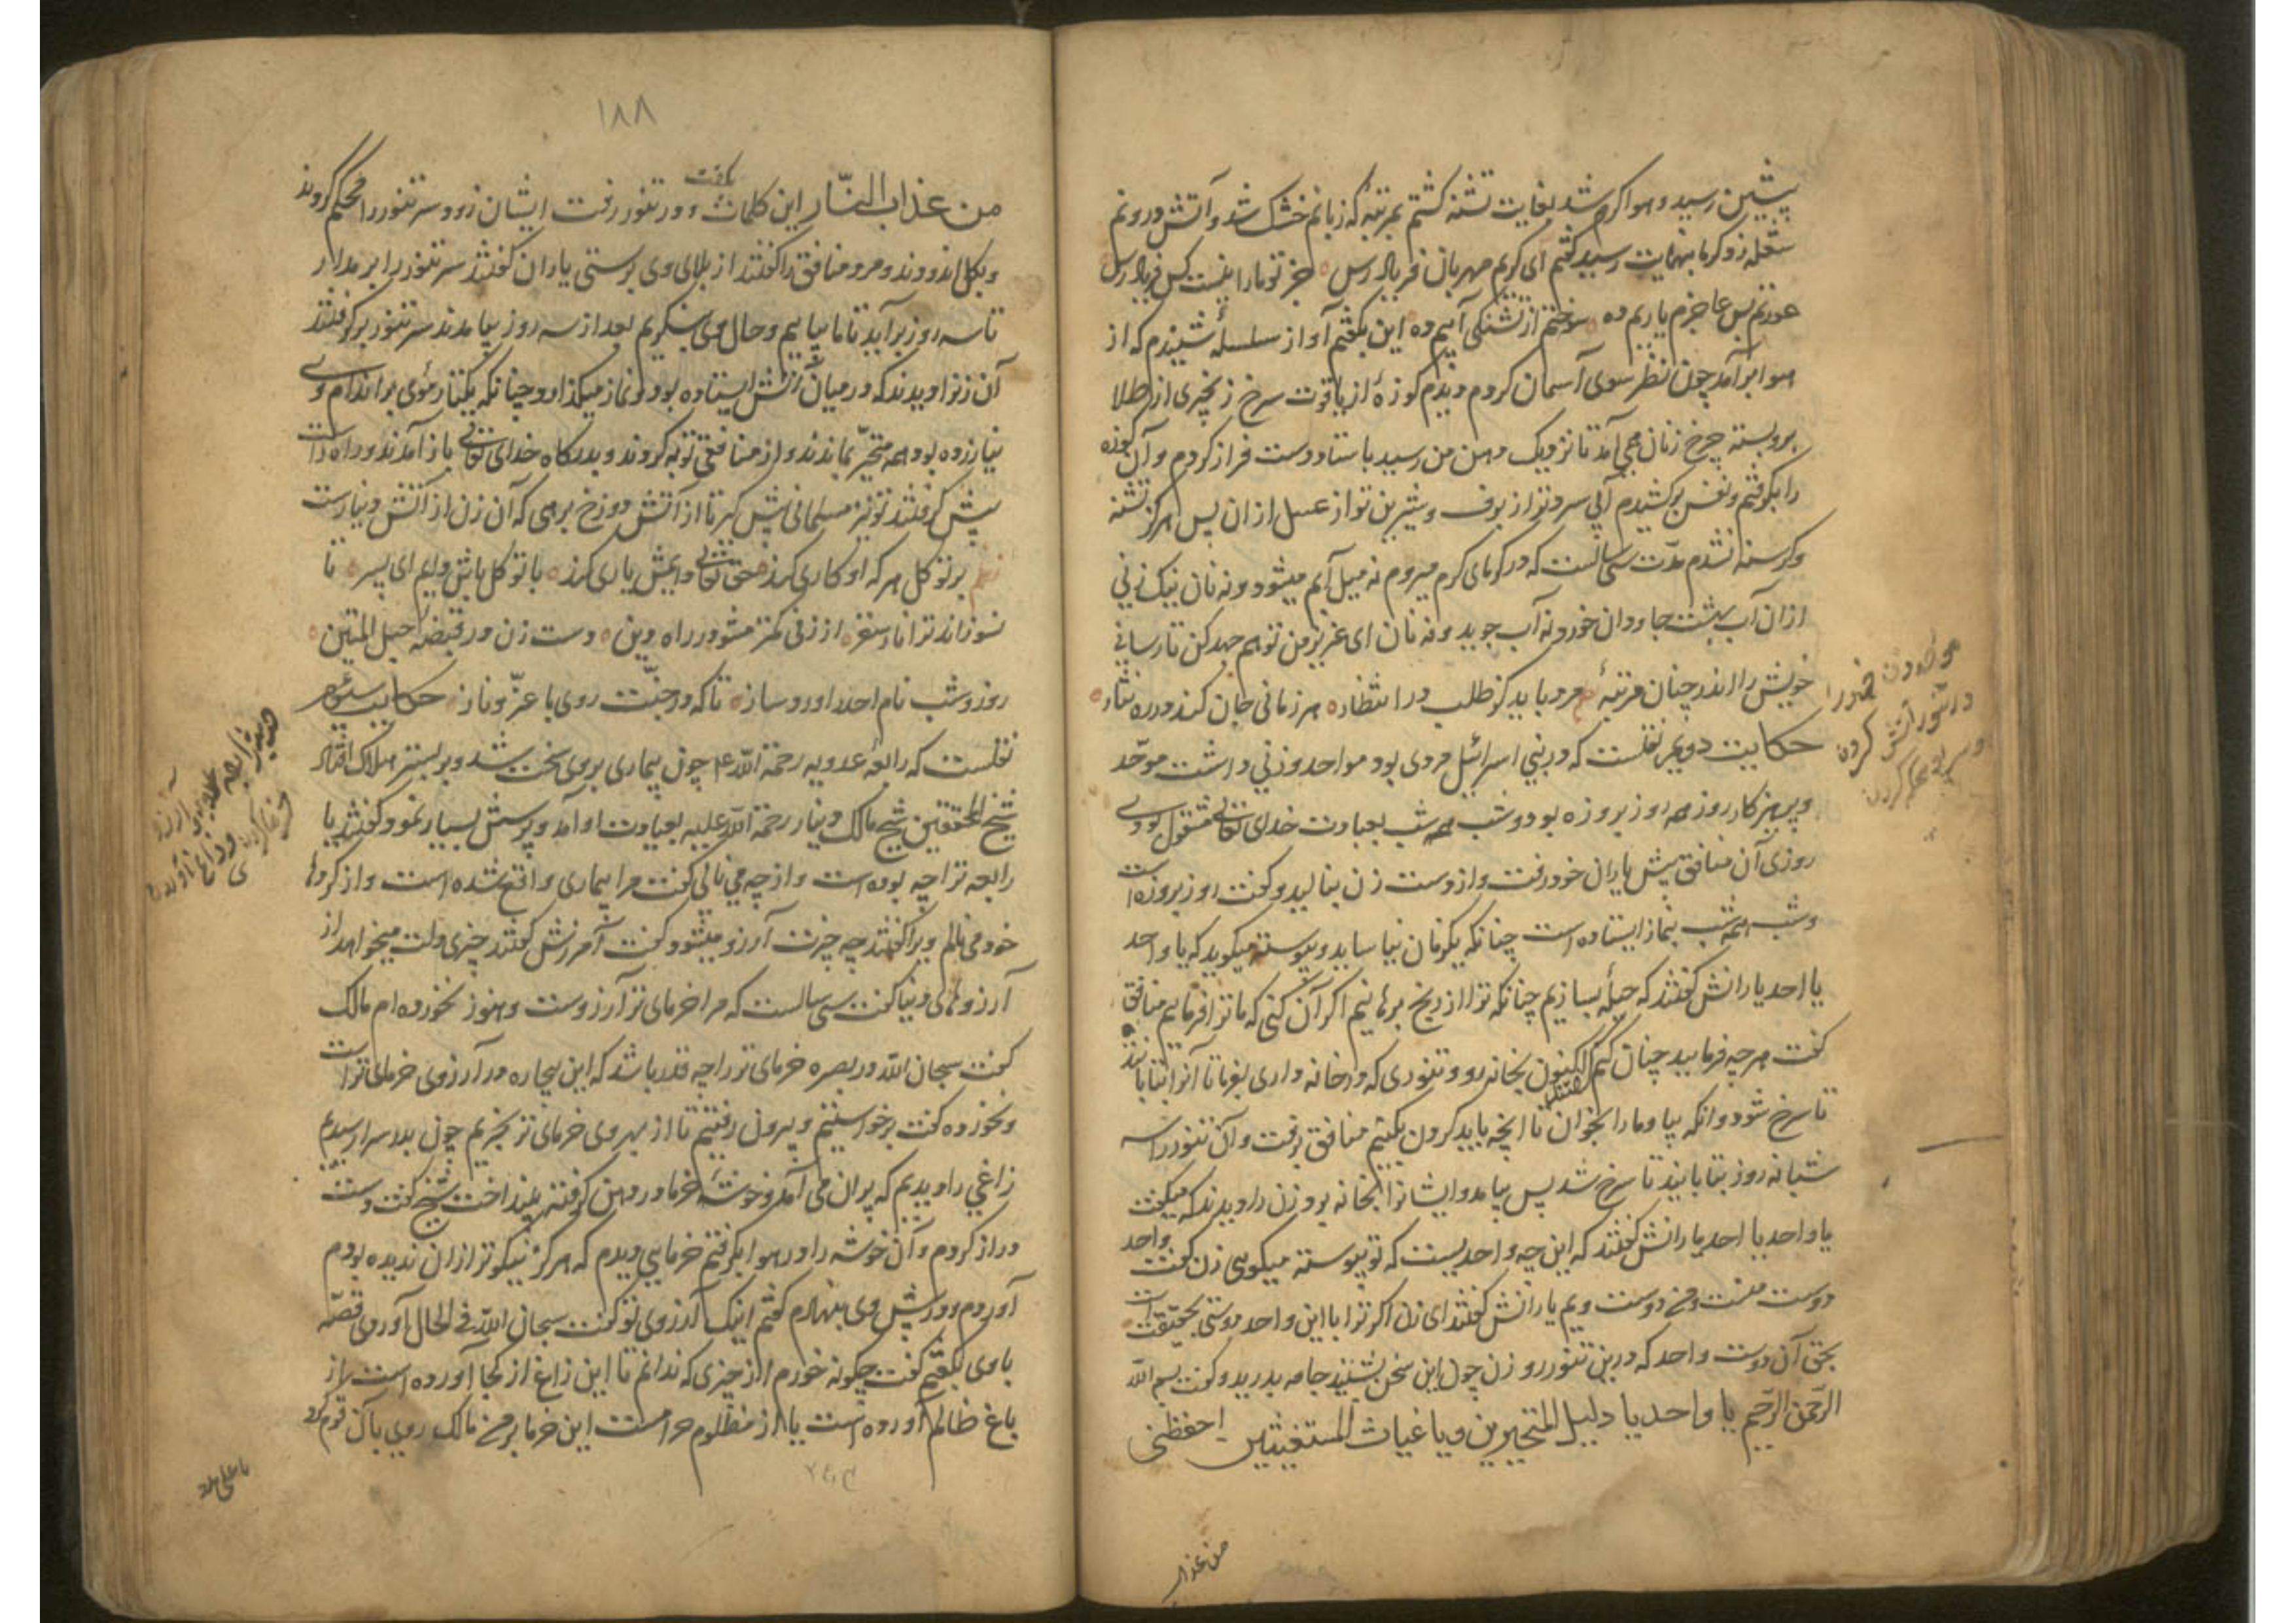 پیشین رسید و هوا گرم شد بغایت تشنه گشتم بمرتبهٔ که زبانم خشک شد و آتش درونم
شعله زد و گرما بنهایت رسید گفتم ای کریم مهربان فریاد رس جز تو ما را نیست کس فریاد رس
عورتم بس عاجزم یاریم ده سوختم از تشنگی آبیم ده این بگفتم آواز سلسلهٔ شنیدم که از
هوا برآمد چون نظر سوی آسمان کردم دیدم کوزهٔ از یاقوت سرخ زنجیری از طلا
بروبسته چرخ زنان می آمد تا نزدیک دهن من رسید باستاد دست فراز کردم و آن کوزه
را بگرفتم و نفس برکشیدم آبی سردتر از برف و شیرین تر از عسل از ان پس هرگز تشنه
و گرسنه نشدم مدت سی سالست که در گرمای گرم میروم نه میل آبم میشود و نه نان نیک زنی
ازان آب بهشت جاودان خورد نه آب جوید و نه نان ای عزیز من تو هم جهد کن تا رسانی
خویش را اندر چنان مرتبهٔ مرد باید کز طلب در انتظار هر زمانی جان کند در ره نثار
حکایت دویم نقلست که در بنی اسرائیل مردی بود و زنی داشت موحد
و پرهیزکار روز همه روز بروزه بود و شب همه شب بعبادت خدای تعالی مشغول بودی
روزی آن منافق پیش یاران خود رفت و از دست زن بنالید و گفت روز بروزه است
و شب همه شب بنماز ایستاده است چنانکه یکزمان نیاساید و پیوسته میگوید که یا واحد
یا احد یارانش گفتند که حیلهٔ بسازیم چنانکه ترا از رنج برهانیم اگر آن کنی که ما ترا فرمائیم منافق
گفت هرچه فرمایید چنان کنم گفتند اکنون بخانه رو و تنوری که در خانه داری بفرما تا آنرا بتابانند
تا سرخ شود وانگه بیا و ما را بخوان تا آنچه باید کردن بکنیم منافق برفت و آن تنور را سه
شبانه روز بتابانید تا سرخ شد پس بیامد و ایشانرا بخانه برد زن را دیدند که میگفت
یا واحد یا احد یارانش گفتند که این چه واحدیست که تو پیوسته میگویی زن گفت واحد
دوست منست و من دوست ویم یارانش گفتند ای زن اگر ترا با این واحد دوستی بحقیقت است
بحق آن دوست واحد که درین تنور رو زن چون این سخن بشنید جامه بدرید و گفت بسم الله
الرحمن الرحیم یا واحد یا دلیل المتحیرین و یا غیاث المستغیثین احفظنی
من عذاب
در تنور آتش کردن
۱۸۸
من عذاب النار این کلمات بگفت و در تنور رفت ایشان زود سر تنور را محکم کردند
و بگل اندودند و مرد منافق را گفتند از بلای وی برستی یاران گفتند سر تنور را بر مدار
تا سه روز برآید تا ما بیاییم و حال وی بنگریم بعد از سه روز بیامدند سر تنور برگرفتند
آن زنرا دیدند که در میان آتش ایستاده بود و نماز میگذارد چنانکه یکتار موی بر اندام وی
نیازرده بود همه متحیر بماندند و از منافقی توبه کردند و بدرگاه خدای تعالی باز آمدند و راه راست
پیش گرفتند تو نیز مسلمانی پیش گیر تا از آتش دوزخ برهی که آن زن از آتش دنیا رست
بر توکل هر که او کاری کند حق تعالی دایمش یاری کند با توکل باش دایم ای پسر تا
نسوزاند ترا نار سقر از زنی کمتر مشو در راه دین دست زن در قبضهٔ حبل المتین
روز و شب نام احد را ورد ساز تا که در جنت روی با عز و ناز حکایت سیوم
نقلست که رابعه عدویه رحمة الله ع چون بیماری بروی سخت شد و بر بستر هلاک افتاد
شیخ المحققین شیخ مالک دینار رحمة الله علیه بعیادت او آمد و پرسش بسیار نمود گفتند یا
رابعه ترا چه بوده است و از چه می نالی گفت مرا بیماری واقع شده است و از کردهٔ
خود می نالم ویرا گفتند چه چیزت آرزو میشود گفت آمرزش گفتند چیزی دلت میخواهد از
آرزوهای دنیا گفت سی سالست که مرا خرمای تر آرزوست و هنوز نخورده ام مالک
گفت سبحان الله در بصره خرمای تر را چه قدر باشد که این بیچاره در آرزوی خرمای تر است
و نخورده گفت برخواستیم و بیرون رفتیم تا از بهر وی خرمای تر بخریم چون بدر سرا رسیدیم
زاغی را دیدیم که پران می آمد و خوشهٔ خرما در دهن گرفته بینداخت شیخ گفت دست
دراز کردم و آن خوشه را در هوا بگرفتم خرمایی دیدم که هرگز نیکوتر ازان ندیده بودم
آوردم و در پیش وی بنهادم گفتم اینک آرزوی تو گفت سبحان الله فی الحال آوردی قصه
باوی بگفتیم گفت چگونه خورم از چیزی که ندانم تا این زاغ از کجا آورده است از
باغ ظالم آورده است یا از مظلوم حرامست این خرما بر من مالک روی باآن قوم کرد